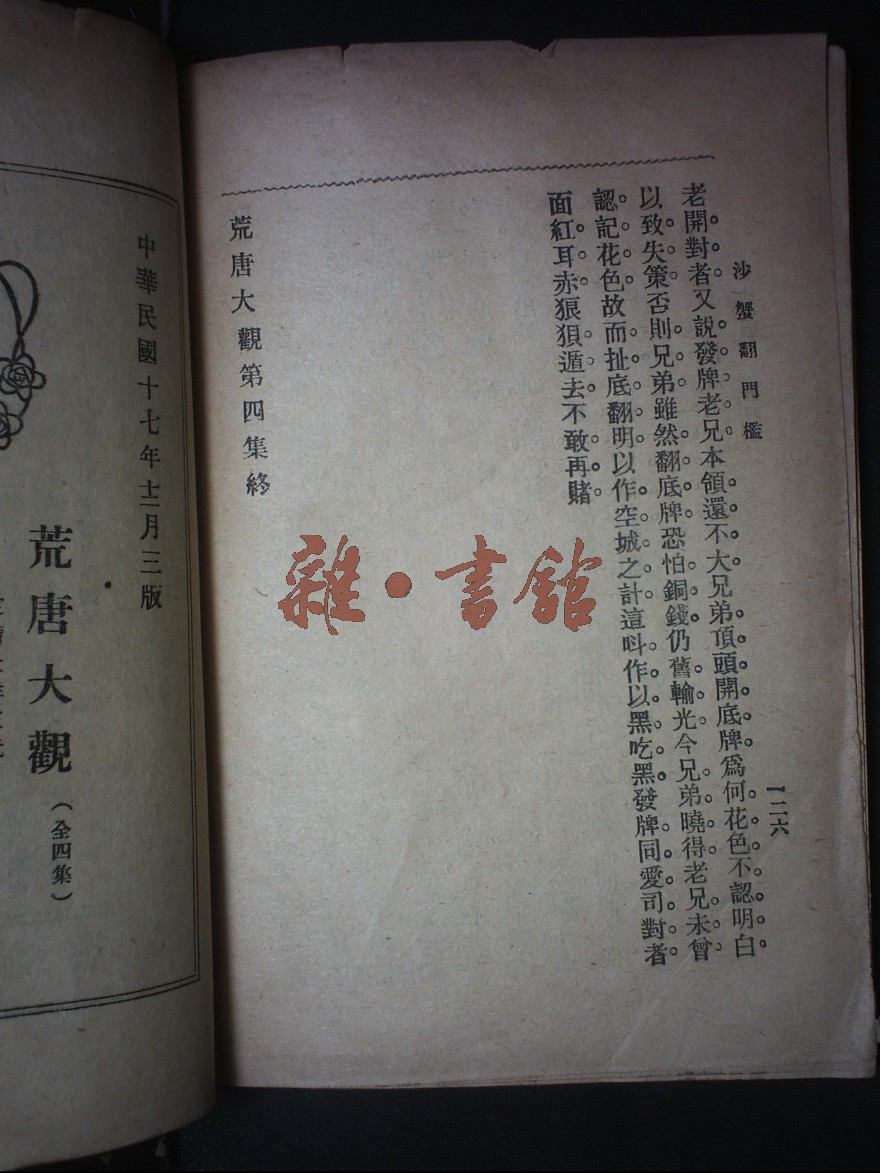 沙蟹翻門檻
一二六
老開對者。又說發牌老兄。本領還不大。兄弟頂頭開底牌。爲何花色不認明白。
以致失策。否則兄弟雖然翻底牌。恐怕銅錢仍舊輸光。今兄弟曉得老兄未曾
認記花色。故而扯底翻明。以作空城之計。這呌作以黑吃黑。發牌同愛司對者。
面紅耳赤。狼狽遁去。不敢再賭。
荒唐大觀第四集終
雜·書館
中華民國十七年十二月三版
荒唐大觀
（全四集）